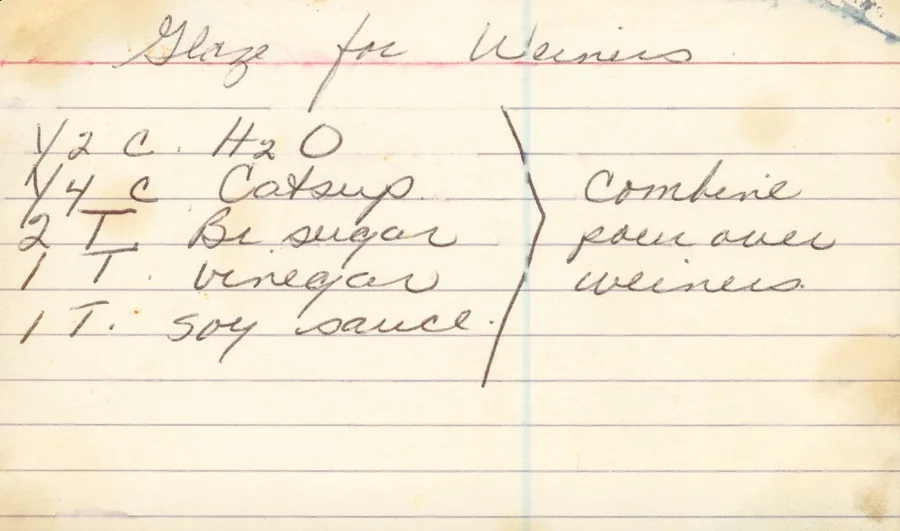 Glaze for Weiners
1/2 C. H2O
1/4 C Catsup
2 T. Br sugar
1 T. vinegar
1 T. soy sauce.
Combine
pour over
weiners.